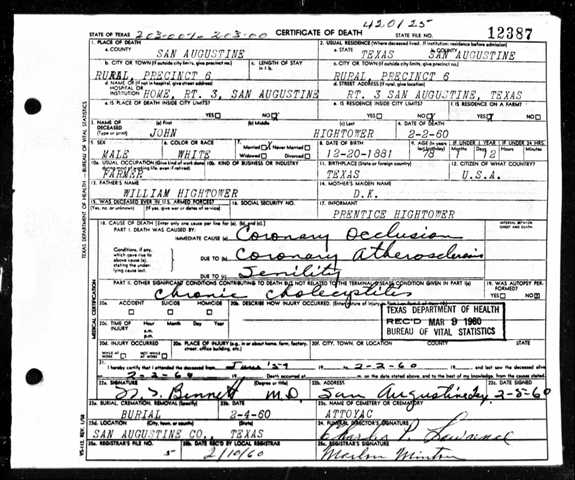 420125
STATE OF TEXAS 203-00% 203-00 CERTIFICATE OF DEATH STATE FILE NO. 12387
1. PLACE OF DEATH 2. USUAL RESIDENCE (Where deceased lived. If institution: residence before admission)
a. COUNTY SAN AUGUSTINE a. STATE TEXAS b. COUNTY SAN AUGUSTINE
b. CITY OR TOWN (If outside city limits, give precinct no.) c. LENGTH OF STAY in 1 b. c. CITY OR TOWN (If outside city limits, give precinct no.)
RURAL, PRECINCT 6 RURAL, PRECINCT 6
d. NAME OF (If not in hospital, give street address) HOSPITAL OR INSTITUTION d. STREET ADDRESS (If rural, give location)
HOME, RT. 3, SAN AUGUSTINE RT. 3 SAN AUGUSTINE, TEXAS
e. IS PLACE OF DEATH INSIDE CITY LIMITS? e. IS RESIDENCE INSIDE CITY LIMITS? f. IS RESIDENCE ON A FARM?
YES NO YES NO YES NO
3. NAME OF DECEASED (Type or print) (a) First (b) Middle (c) Last 4. DATE OF DEATH
JOHN HIGHTOWER 2-2-60
5. SEX 6. COLOR OR RACE 7. Married Never Married Widowed Divorced 8. DATE OF BIRTH 9. AGE (In years last birthday) IF UNDER 1 YEAR IF UNDER 24 HRS.
MALE WHITE 12-20-1881 78 1 12
10a. USUAL OCCUPATION 10b. KIND OF BUSINESS OR INDUSTRY 11. BIRTHPLACE (State or foreign country) 12. CITIZEN OF WHAT COUNTRY?
FARMER TEXAS U.S.A.
13. FATHER'S NAME 14. MOTHER'S MAIDEN NAME
WILLIAM HIGHTOWER D.K.
15. WAS DECEASED EVER IN U.S. ARMED FORCES? 16. SOCIAL SECURITY NO. 17. INFORMANT
(Yes, no, or unknown) (If yes, give war or dates of service) PRENTICE HIGHTOWER
18. CAUSE OF DEATH [Enter only one cause per line for (a), (b), and (c).] INTERVAL BETWEEN ONSET AND DEATH
PART I. DEATH WAS CAUSED BY:
IMMEDIATE CAUSE (a) Coronary Occlusion
Conditions, if any, which gave rise to above cause (a), stating the underlying cause last.
DUE TO (b) Coronary Atherosclerosis
DUE TO (c) Senility
PART II. OTHER SIGNIFICANT CONDITIONS CONTRIBUTING TO DEATH BUT NOT RELATED TO THE TERMINAL DISEASE CONDITION GIVEN IN PART I(a) 19. WAS AUTOPSY PERFORMED?
Chronic Cholecystitis YES NO
20a. ACCIDENT SUICIDE HOMICIDE 20b. DESCRIBE HOW INJURY OCCURRED.
TEXAS DEPARTMENT OF HEALTH
REC'D MAR 9 1960
BUREAU OF VITAL STATISTICS
20c. TIME OF INJURY Hour Month Day Year
a.m.
p.m.
20d. INJURY OCCURRED 20e. PLACE OF INJURY (e.g., in or about home, farm, factory, street, office building, etc.) 20f. CITY, TOWN, OR LOCATION COUNTY STATE
WHILE AT WORK NOT WHILE AT WORK
21. I hereby certify that I attended the deceased from June '59 to 2-2-60 and last saw the deceased alive
2-2-60 Death occurred at m. on the date stated above; and to the best of my knowledge, from the causes stated.
22a. SIGNATURE (Degree or title) 22b. ADDRESS 22c. DATE SIGNED
Bennett M.D. San Augustine 2-5-60
23a. BURIAL, CREMATION, REMOVAL (Specify) 23b. DATE 23c. NAME OF CEMETERY OR CREMATORY
BURIAL 2-4-60 ATTOYAC
23d. LOCATION (City, town, or county) (State) 24. FUNERAL DIRECTOR'S SIGNATURE
SAN AUGUSTINE CO., TEXAS Charles P. Lawrence
25a. REGISTRAR'S FILE NO. 25b. DATE REC'D BY LOCAL REGISTRAR 25c. REGISTRAR'S SIGNATURE
5 2/10/60 Marlon Minton
TEXAS DEPARTMENT OF HEALTH — BUREAU OF VITAL STATISTICS
MEDICAL CERTIFICATION
VS-112, REV. 1/58